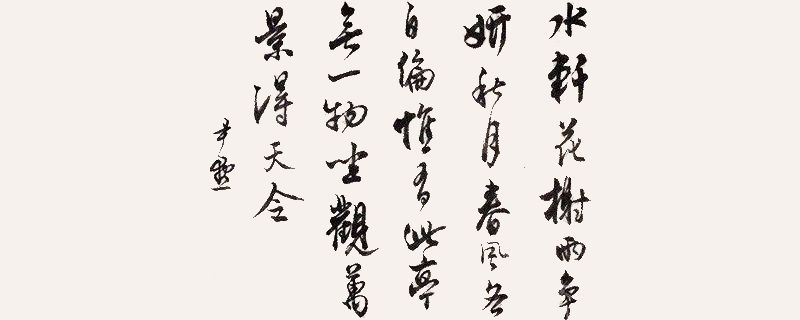 水軒花榭兩爭
妍秋月春風各
自偏惟有此亭
無一物坐觀萬
景得天全
尹默